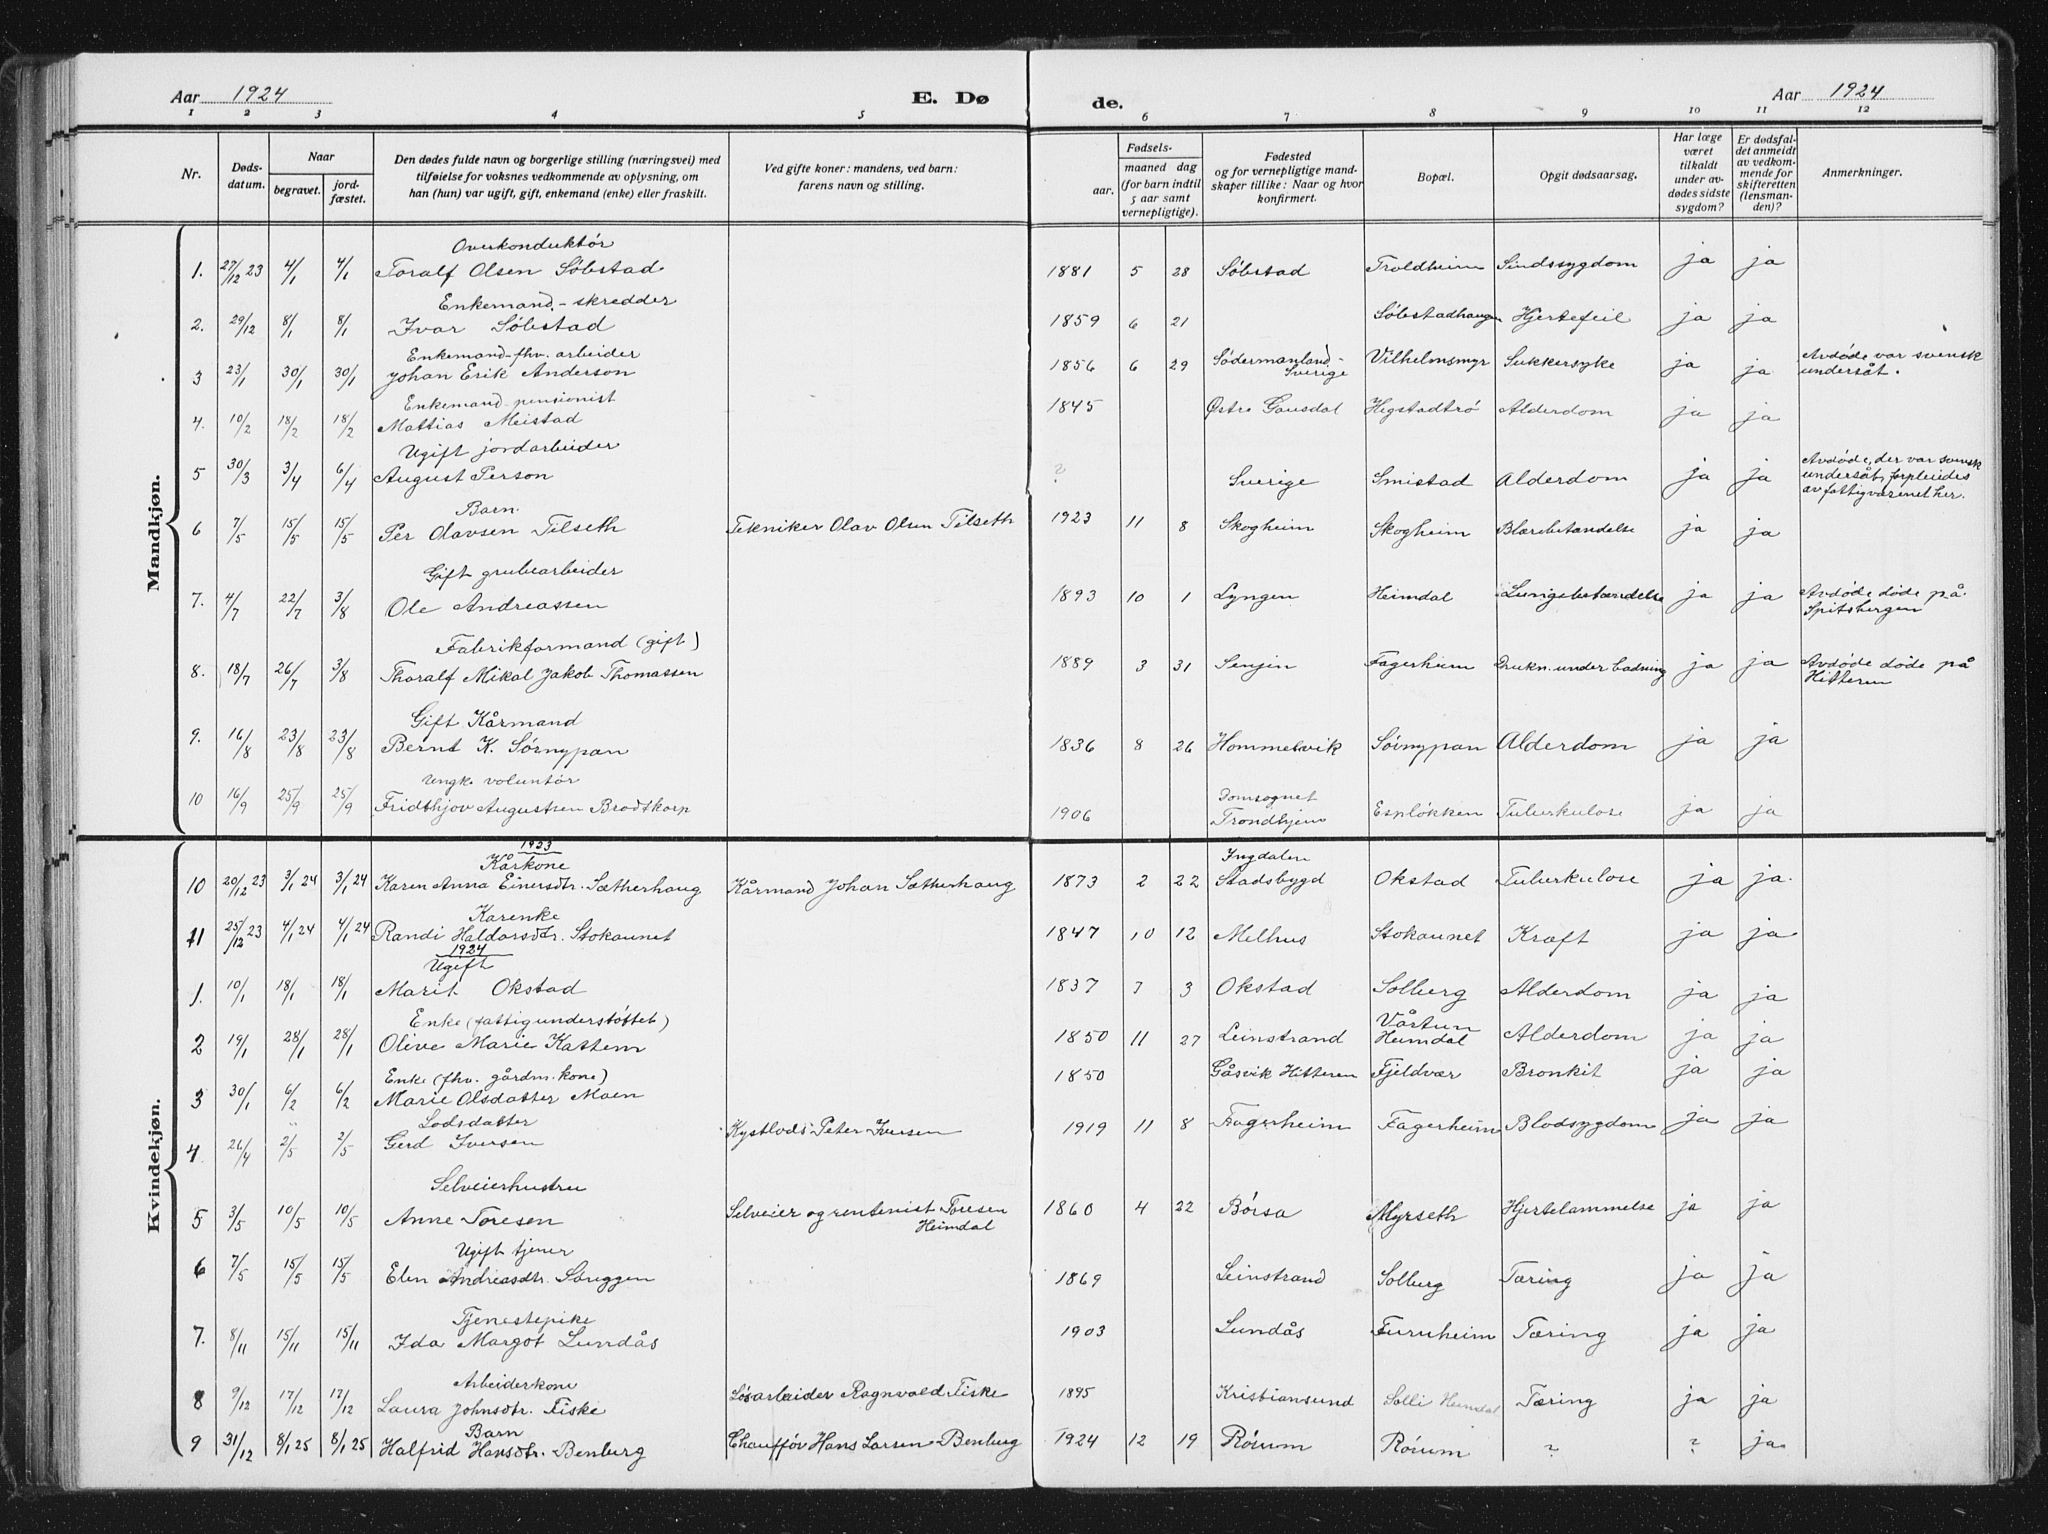 Aar 1924 E. Dø de. Aar 1924
1 2 3 4 5 6 7 8 9 10 11 12
Nr.
Døds-
datum.
Naar
begravet.
jord-
fæstet.
Den dødes fulde navn og borgerlige stilling (næringsvei) med
tilføielse for voksnes vedkommende av oplysning, om
han (hun) var ugift, gift, enkemand (enke) eller fraskilt.
Ved gifte koner: mandens, ved barn:
farens navn og stilling.
Fødsels-
aar.
maaned dag
(for barn indtil
5 aar samt
vernepligtige).
Fødested
og for vernepligtige mand-
skaper tillike: Naar og hvor
konfirmert.
Bopæl.
Opgit dødsaarsag.
Har læge
været
tilkaldt
under av-
dødes sidste
sygdom?
Er dødsfal-
det anmeldt
av vedkom-
mende for
skifteretten
(lensman-
den)?
Anmerkninger.
Mandkjøn.
Overkonduktør
1. 27/12 23 4/1 4/1 Toralf Olsen Søbstad 1881 5 28 Søbstad Troldheim Sindssygdom ja ja
Enkemand - skredder
2. 29/12 8/1 8/1 Ivar Søbstad 1859 6 21 Søbstadhaugen Hjertefeil ja ja
Enkemand - fhv. arbeider
3 23/1 30/1 30/1 Johan Erik Anderson 1856 6 29 Södermanland - Vilhelmsmyr Sukkersyke ja ja Avdøde var svensk
Sverige undersåt.
Enkemand pensionist
4. 10/2 18/2 18/2 Mattias Meistad 1845 Østre Gausdal Hegstadtrø Alderdom ja ja
Ugift jordarbeider
5 30/3 3/4 6/4 August Person ? Sverige Smistad Alderdom ja ja Avdøde, der var svensk
undersåt, forpleides
av fattigvæsenet her.
Barn
6 7/5 15/5 15/5 Per Olavsen Tilseth Tekniker Olav Olsen Tilseth 1923 11 8 Skogheim Skogheim Blærebetændelse ja ja
Gift grubearbeider
7. 4/7 22/7 3/8 Ole Andreassen 1893 10 1 Lyngen Heimdal Lungebetændelse ja ja Avdøde døde på
Spitsbergen
Fabrikformand (gift)
8. 18/7 26/7 3/8 Thoralf Mikal Jakob Thomassen 1889 3 31 Senjen Fagerheim Drukn. under badning ja ja Avdøde døde på
Hitteren
Gift Kårmand
9. 16/8 23/8 23/8 Bernt K. Sørnypan 1836 8 26 Hommelvik Sørnypan Alderdom ja ja
Ungk. voluntør
10 16/9 25/9 25/9 Fridthjov Augustsen Brodtkorp 1906 Domsognet
Trondhjem Espløkken Tuberkulose ja ja
Kvindekjøn.
1923
Kårkone
10 20/12 23 3/1 24 3/1 24 Karen Anna Einersdtr. Sætherhaug Kårmand Johan Sætherhaug 1873 2 22 Ingdalen
Stadsbygd Okstad Tuberkulose ja ja.
Karenke
11 25/12 23 4/1 24 4/1 24 Randi Haldorsdtr. Stokaunet 1847 10 12 Melhus Stokaunet Kræft ja ja
1924
Ugift
1. 10/1 18/1 18/1 Marit Okstad 1837 7 3 Okstad Solberg Alderdom ja ja
Enke (fattigunderstøttet)
2 19/1 28/1 28/1 Olive Marie Kattem 1850 11 27 Leinstrand Vårtun
Heimdal Alderdom ja ja
Enke (fhv. gårdm. kone)
3 30/1 6/2 6/2 Marie Olsdatter Moen 1850 Gåsvik Hitteren Fjeldvær Bronkit ja ja
Lodsdatter
4 26/4 2/5 2/5 Gerd Iversen Kystlods Peter Iversen 1919 11 8 Fagerheim Fagerheim Blodsygdom ja ja
Selveierhustru
5 3/5 10/5 10/5 Anne Toresen Selveier og rentenist Toresen
Heimdal 1860 4 22 Børsa Myrseth Hjertelammelse ja ja
Ugift tjener
6 7/5 15/5 15/5 Elen Andreasdtr. Søreggen 1869 Leinstrand Solberg Tæring ja ja
Tjenestepike
7. 8/11 15/11 15/11 Ida Margot Lundås 1903 Lundås Furuheim Tæring ja ja
Arbeiderkone
8 9/12 17/12 17/12 Laura Johnsdtr. Fiske Løsarbeider Ragnvald Fiske 1895 Kristiansund Solli Heimdal Tæring ja ja
Barn
9 31/12 8/1 25 8/1 25 Halfrid Hansdtr. Benberg Chauffør Hans Larsen Benberg 1924 12 19 Rørum Rørum ? ? ja